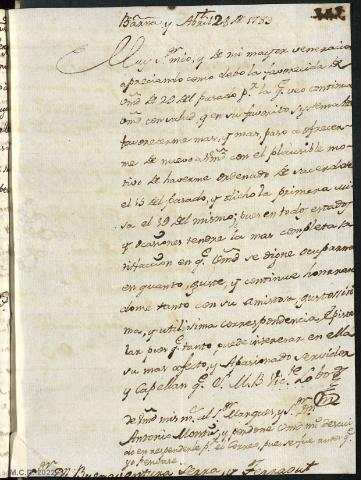 Barna y Abril 28 de 1783
Muy Sr. mio, y de mi mayor veneracion
apreciando como debo la favorecida de
Vmd de 29 del pasado pr. la q. veo continua
Vmd con salud, y en su favorito systema de
favorecerme mas, y mas, paso a ofrecer
me de nuevo a Vmd con el plausible mo-
tivo de haverme ordenado de sacerdote
el 15 del pasado, y dicho la primera mi-
sa el 19 del mismo; pues en todos estados
y ocasiones tendre la mas completa sa-
tisfaccion en q. Vmd se digne ocuparme
en quanto, guste, y continue honrran-
dome tanto con su amistad, gustosissi-
ma, y utilissima correspondencia, Episto-
lar pues q. tanto puede interesar en ella
su mas afecto, y Apasionado servidor
y Capellan q. S. M. B.
de Vmd mismo, al Sr. Marques, y Sr. Dn
Antonio, y perdone Vmd mi
do en responderle pr. el Correo, pues fue antes q.
yo pensase.
Sr. Dn. Buenaventura Serra y Ferragut
M.C.D. 2022